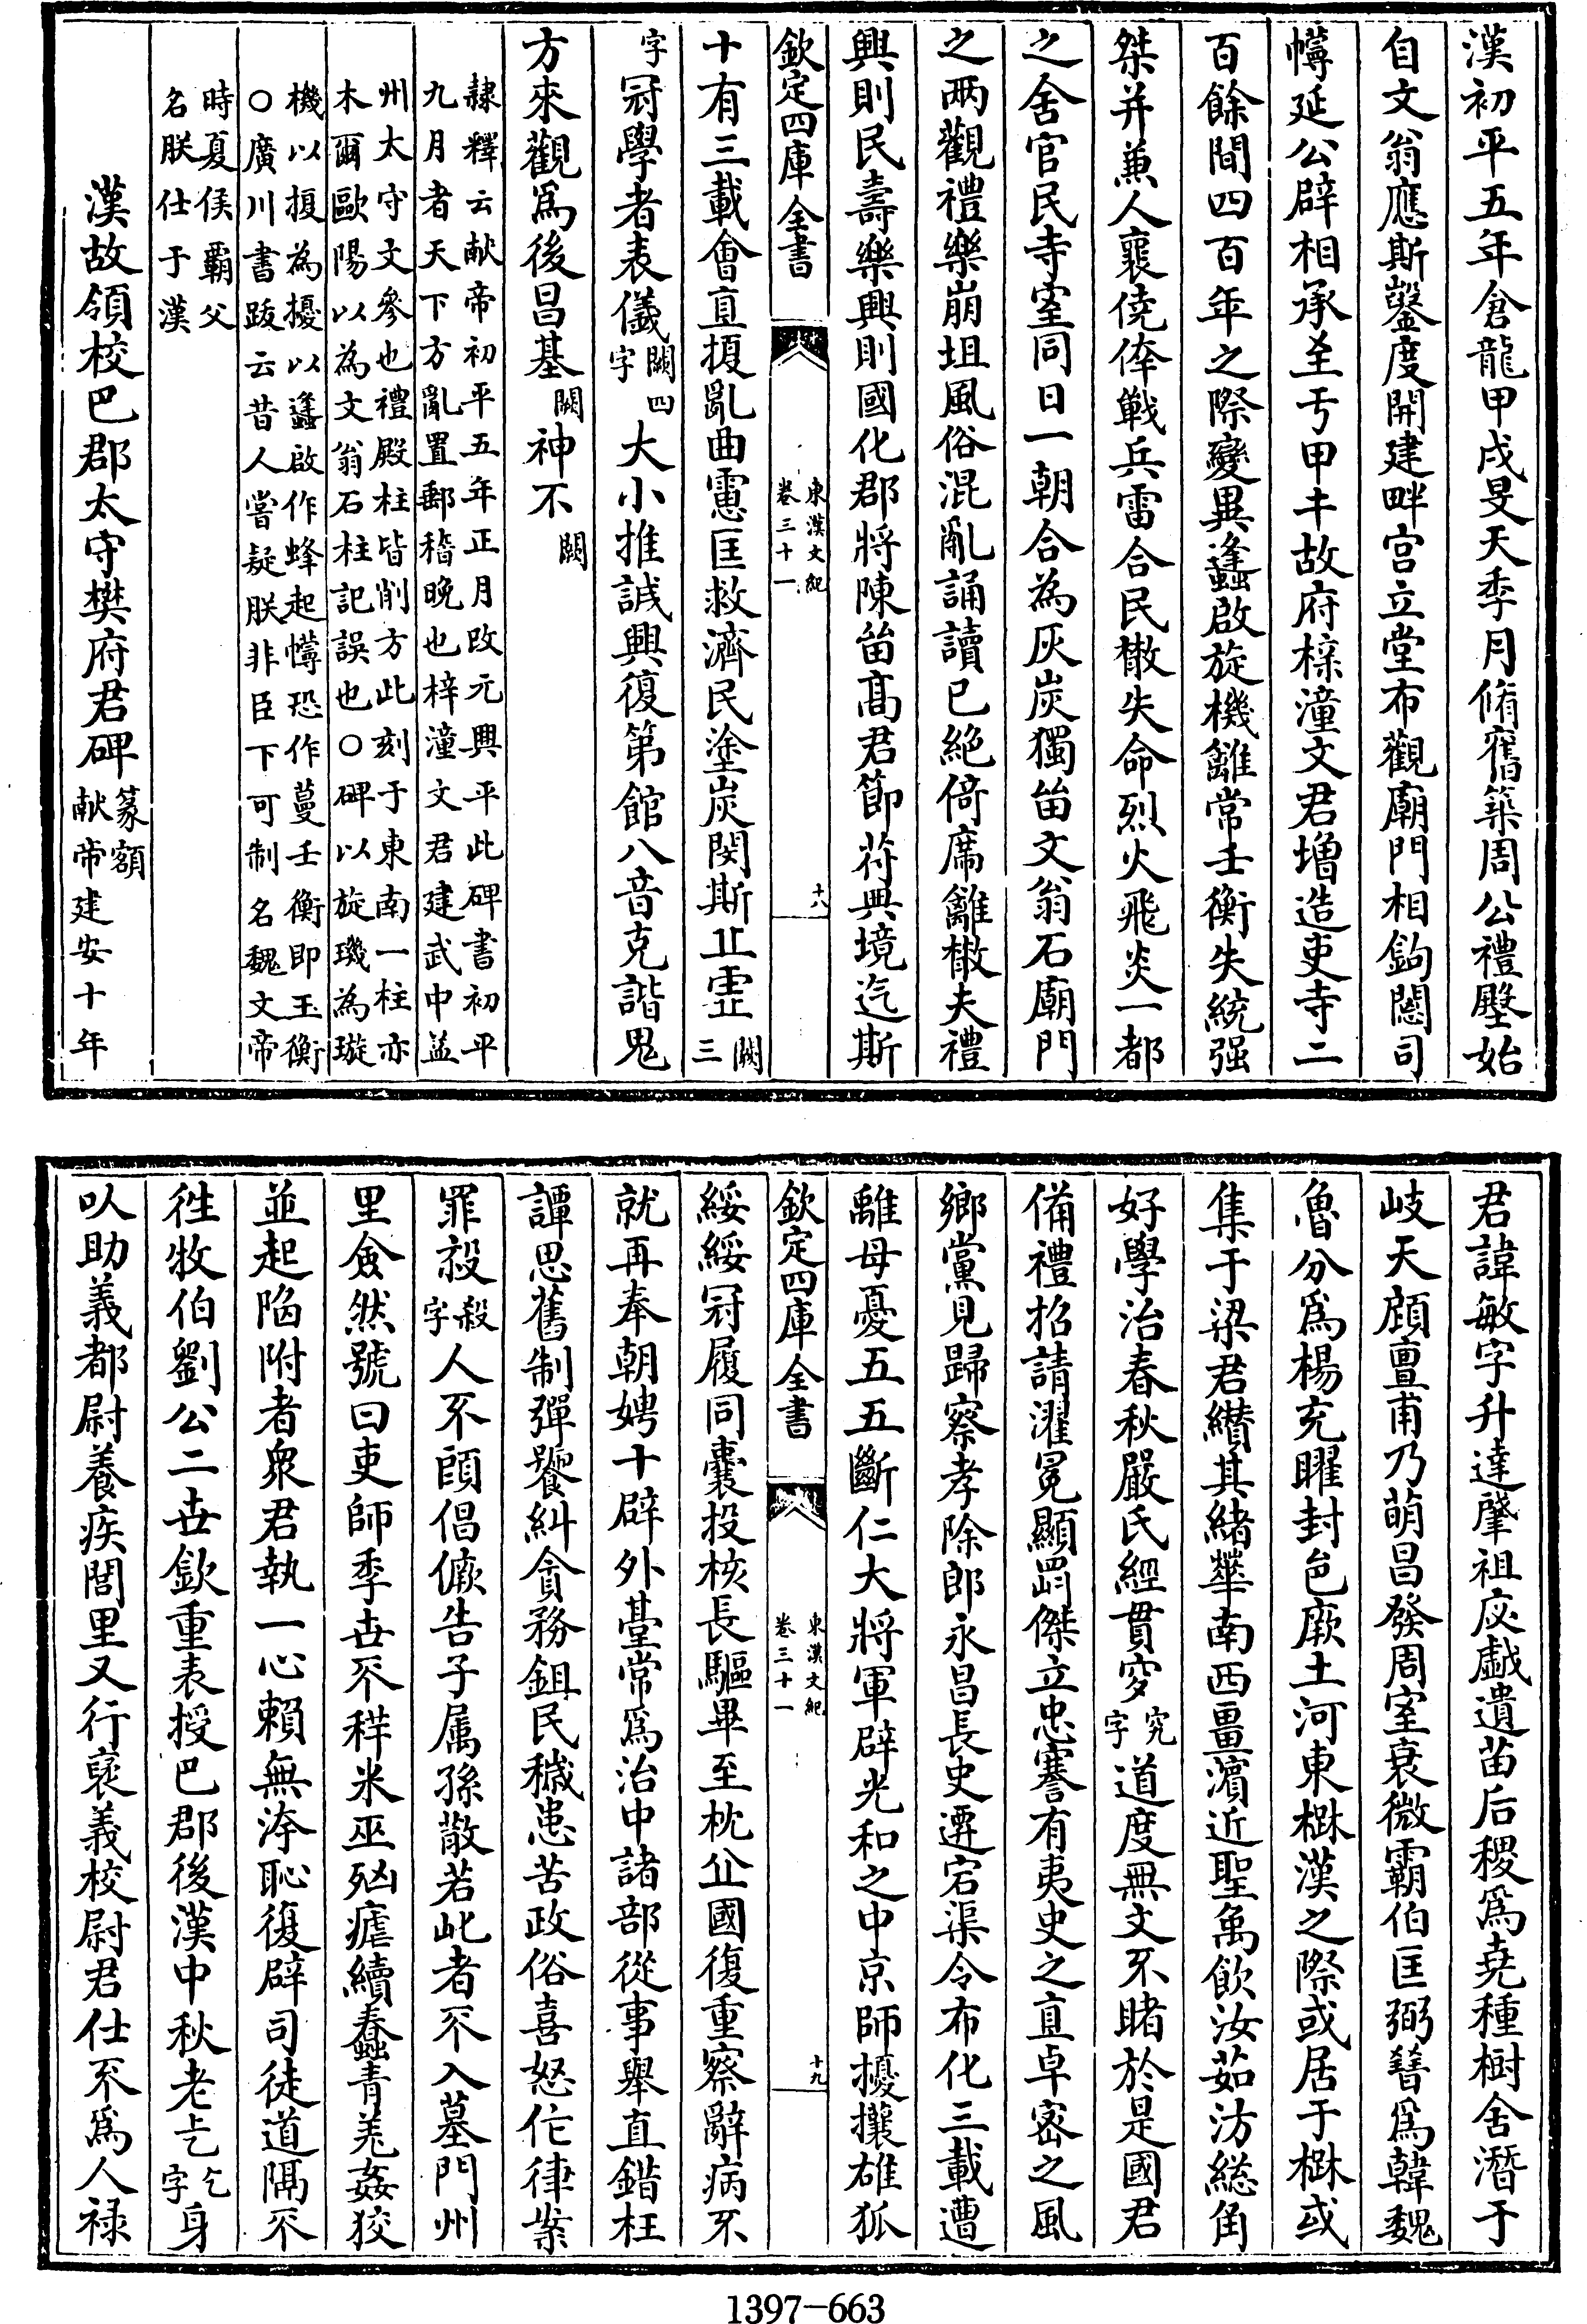 漢初平五年倉龍甲戌旻天季月脩舊築周公禮殿始
自文翁應斯鑿度開建畔宫立堂布觀廟門相鉤閟司
幬延公辟相承至于甲午故府梓潼文君增造吏寺二
百餘間四百年之際變異蠭啟旋機離常玉衡失統强
桀并兼人襄僥倖戰兵雷合民散失命烈火飛炎一都
之舍官民寺室同日一朝合為灰炭獨留文翁石廟門
之兩觀禮樂崩坦風俗混亂誦讀已絶倚席離散夫禮
興則民壽樂興則國化郡將陳留髙君節符典境迄斯
欽定四庫全書
東漢文紀
卷三十一
十八
十有三載會直擾亂曲慮匡救濟民塗炭閔斯丘虚闕三
字冠學者表儀闕四字大小推誠興復第館八音克諧鬼
方來觀爲後昌基闕神不闕
隷釋云献帝初平五年正月改元興平此碑書初平
九月者天下方亂置郵稽晚也梓潼文君建武中益
州太守文參也禮殿柱皆削方此刻于東南一柱亦
木爾歐陽以為文翁石柱記誤也○碑以旋璣為璇
機以揠為擾以蠭啟作蜂起幬恐作蔓壬衡即玉衡
○廣川書跋云昔人嘗疑朕非臣下可制名魏文帝
時夏侯覇父
名朕仕于漢
漢故領校巴郡太守樊府君碑篆額献帝建安十年
君諱敏字升達肇祖宓戯遺苗后稷爲堯種樹舍潛于
岐天顧亶甫乃萌昌發周室衰微霸伯匡弼晉爲韓魏
魯分爲楊充曜封邑厥土河東楙漢之際或居于楙或
集于梁君纘其緒華南西畺濱近聖禹飲汶茹汸総角
好學治春秋嚴氏經貫穸究字道度無文不睹於是國君
備禮招請濯冕顯㓻傑立忠謇有夷史之直卓密之風
鄉黨見歸察孝除郎永昌長史遷宕渠令布化三載遭
離母憂五五斷仁大將軍辟光和之中京師擾攘雄狐
欽定四庫全書
東漢文紀
卷三十一
十九
綏綏冠履同囊投核長驅畢至枕丘國復重察辭病不
就再奉朝娉十辟外臺常爲治中諸部從事舉直錯枉
譚思舊制彈饕糾貪務鉏民穢患苦政俗喜怒作律案
罪㱾殺字人不顧倡儆告子属孫敢若此者不入墓門州
里僉然號曰吏師季世不祥米巫㓙瘧續蠢青羌姦狡
並起陷附者衆君執一心賴無洿恥復辟司徒道隔不
往牧伯劉公二世欽重表授巴郡後漢中秋老乞乞字身
以助義都尉養疾閭里又行襃義校尉君仕不爲人禄
1397-663